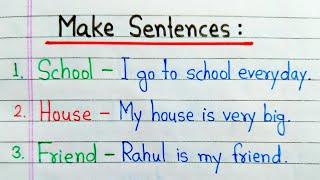 Make Sentences :
1. School - I go to school everyday.
2. House - My house is very big.
3. Friend - Rahul is my friend.